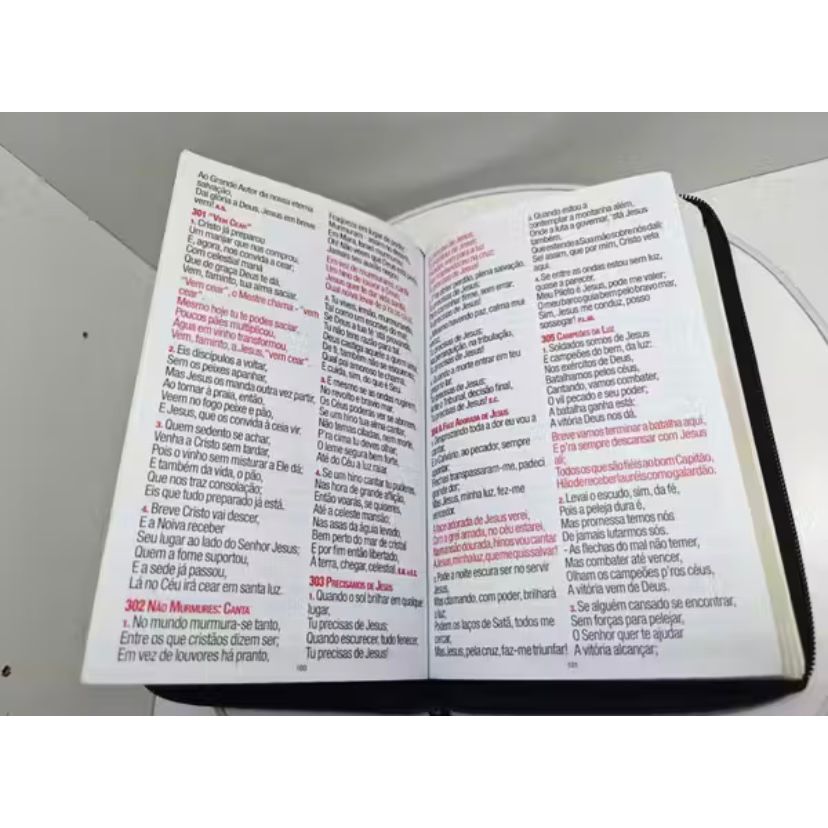 Ao Grande Autor da nossa eterna
salvação,
Dai glória a Deus, Jesus em breve
vem! A.S.
301 "VEM CEAR"
1. Cristo já preparou
Um manjar que nos comprou,
E, agora, nos convida a cear;
Com celestial maná
Que de graça Deus te dá,
Vem, faminto, tua alma saciar.
"Vem cear", o Mestre chama - "vem
cear".
Mesmo hoje tu te podes saciar;
Poucos pães multiplicou,
Água em vinho transformou,
Vem, faminto, a Jesus, "vem cear".
2. Eis discípulos a voltar,
Sem os peixes apanhar,
Mas Jesus os manda outra vez partir,
Ao tornar à praia, então,
Veem no fogo peixe e pão,
E Jesus, que os convida à ceia vir.
3. Quem sedento se achar,
Venha a Cristo sem tardar,
Pois o vinho sem misturar a Ele dá;
E também da vida, o pão,
Que nos traz consolação;
Eis que tudo preparado já está.
4. Breve Cristo vai descer,
E a Noiva receber
Seu lugar ao lado do Senhor Jesus;
Quem a fome suportou,
E a sede já passou,
Lá no Céu irá cear em santa luz.
302 NÃO MURMURES: CANTA
1. No mundo murmura-se tanto,
Entre os que cristãos dizem ser;
Em vez de louvores há pranto,
Fraqueza em lugar de poder.
Murmuram
Em Mara,
Oh! Não vemos que
Jesus seu auto
Em vez de murmurares, canta
Um hino de louvor a Jesus;
Jesus quer te dar vida santa,
Qual noiva levar-te p'ra luz.
2. Tu vives, irmão, murmurando,
Tal como um escravo do mal;
Se Deus a tua fé vai provando,
Tu não tens razão para tal.
Deus castiga aquele a quem ama
De ti, também não se esqueceu;
Qual pai amoroso te chama,
E cuida, sim, do que é Seu.
3. E mesmo se as ondas rugirem,
No revolto e bravio mar,
Os Céus poderás ver se abrirem,
Se um hino tua alma cantar.
Não temas ciladas, nem morte,
P'ra cima tu deves olhar;
O leme segura bem forte,
Até do Céu a luz raiar.
4. Se um hino cantar tu puderes,
Nas hora de grande aflição,
Então voarás, se quiseres,
Até a celeste mansão;
Nas asas da águia levado,
Bem perto do mar de cristal
E por fim então libertado,
À terra, chegar, celestial.
303 PRECISAMOS DE JESUS
1. Quando o sol brilhar em qualquer
lugar,
Tu precisas de Jesus;
Quando escurecer, tudo fenecer,
Tu precisas de Jesus!
100
de Jesus,
de Jesus;
a luz
na cruz
de Jesus!
perdão, plena salvação,
de Jesus;
firme, sem errar,
de Jesus!
havendo paz, calma mui
de Jesus;
na tribulação,
precisas de Jesus!
Quando a morte entrar em teu
lar,
precisas de Jesus;
tribunal, decisão final,
precisas de Jesus! S.C.
A FACE ADORADA DE JESUS
1. Desprezando toda a dor eu vou a
cantar,
Calvário, ao pecador, sempre
apontar;
Flechas transpassaram-me, padeci
grande dor;
Mas Jesus, minha luz, fez-me
vencedor.
A face adorada de Jesus verei,
Com a grei amada, no céu estarei,
Na mansão dourada, hinos vou cantar
A Jesus, minha luz, que me quis salvar!
2. Pode a noite escura ser no servir
Jesus,
Mas clamando, com poder, brilhará
a luz;
Podem os laços de Satã, todos me
cercar,
Mas Jesus, pela cruz, faz-me triunfar!
3. Quando estou a
contemplar a montanha além,
Onde a luta a governar, 'stá Jesus
também,
Que estende a Sua mão sobre nós dali;
Sei assim, que por mim, Cristo vela
aqui.
4. Se entre as ondas estou sem luz,
quase a perecer,
Meu Piloto é Jesus, pode me valer;
O meu barco guia bem pelo bravo mar,
Sim, Jesus me conduz, posso
sossegar! P.L.M.
305 CAMPEÕES DA LUZ
1. Soldados somos de Jesus
E campeões do bem, da luz:
Nos exércitos de Deus,
Batalhamos pelos céus,
Cantando, vamos combater,
O vil pecado e seu poder;
A batalha ganha está;
A vitória Deus nos dá.
Breve vamos terminar a batalha aqui,
E p'ra sempre descansar com Jesus
ali;
Todos os que são fiéis ao bom Capitão,
Hão de receber lauréis como galardão.
2. Levai o escudo, sim, da fé,
Pois a peleja dura é,
Mas promessa temos nós
De jamais lutarmos sós.
- As flechas do mal não temer,
Mas combater até vencer,
Olham os campeões p'ros céus,
A vitória vem de Deus.
3. Se alguém cansado se encontrar,
Sem forças para pelejar,
O Senhor quer te ajudar
A vitória alcançar;
101